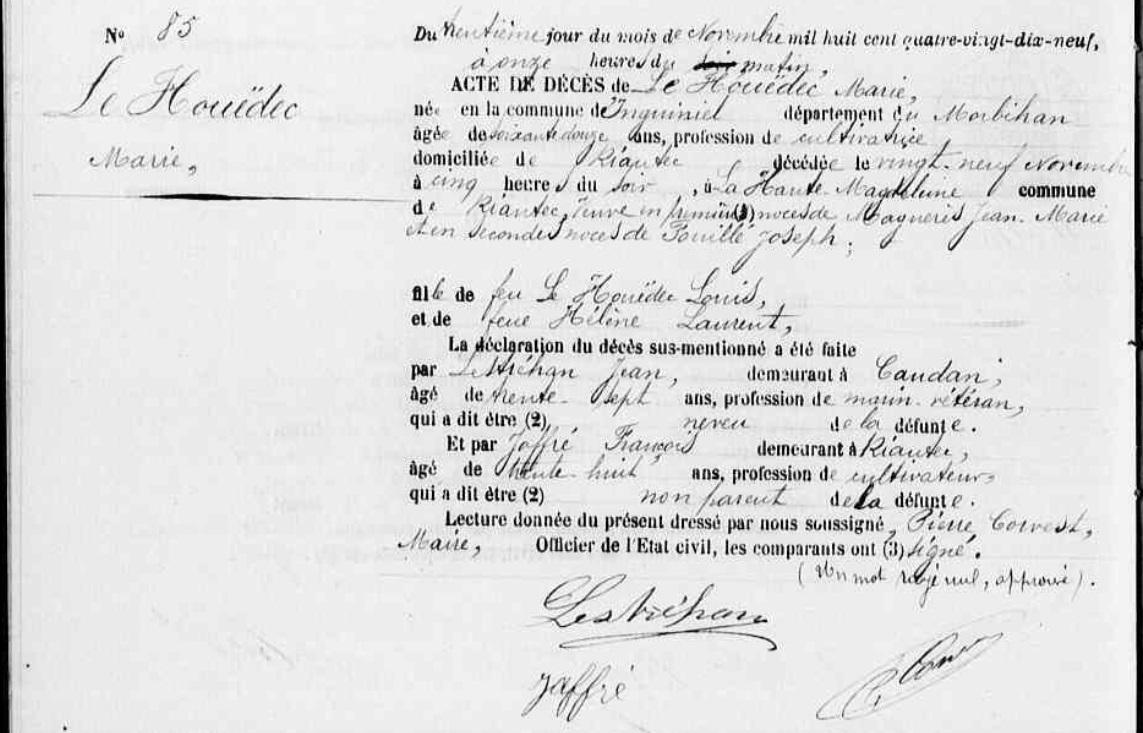 N° 85
Le Houëdec
Marie,
Du trentième jour du mois de Novembre mil huit cent quatre-vingt-dix-neuf,
à onze heures du soir matin,
ACTE DE DÉCÈS de Le Houëdec Marie,
née en la commune d'Inguiniel département du Morbihan
âgée de soixante douze ans, profession de cultivatrice
domiciliée de Riantec décédée le vingt-neuf Novembre
à cinq heures du soir, à La Haute-Magdeleine commune
de Riantec, Veuve en premières (1) noces de Magueres Jean-Marie
et en secondes noces de Pouillé Joseph;
fille de feu Le Houëdec Louis,
et de feue Hélène Laurent,
La déclaration du décès sus-mentionné a été faite
par Lestréhan Jean, demeurant à Caudan,
âgé de trente-sept ans, profession de marin-vétéran,
qui a dit être (2) neveu de la défunte.
Et par Jaffré François demeurant à Riantec,
âgé de trente-huit ans, profession de cultivateur,
qui a dit être (2) non parent de la défunte.
Lecture donnée du présent dressé par nous soussigné, Pierre Corvest,
Maire, Officier de l'Etat civil, les comparants ont (3) signé.
(Un mot rayé nul, approuvé).
Lestréhan
Jaffré